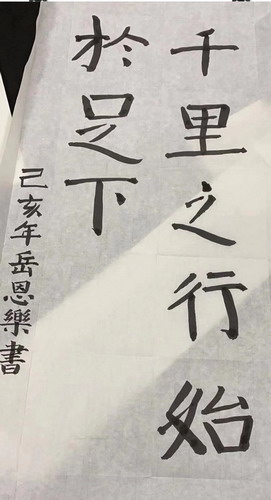 千里之行始
於足下
己亥年岳恩樂書